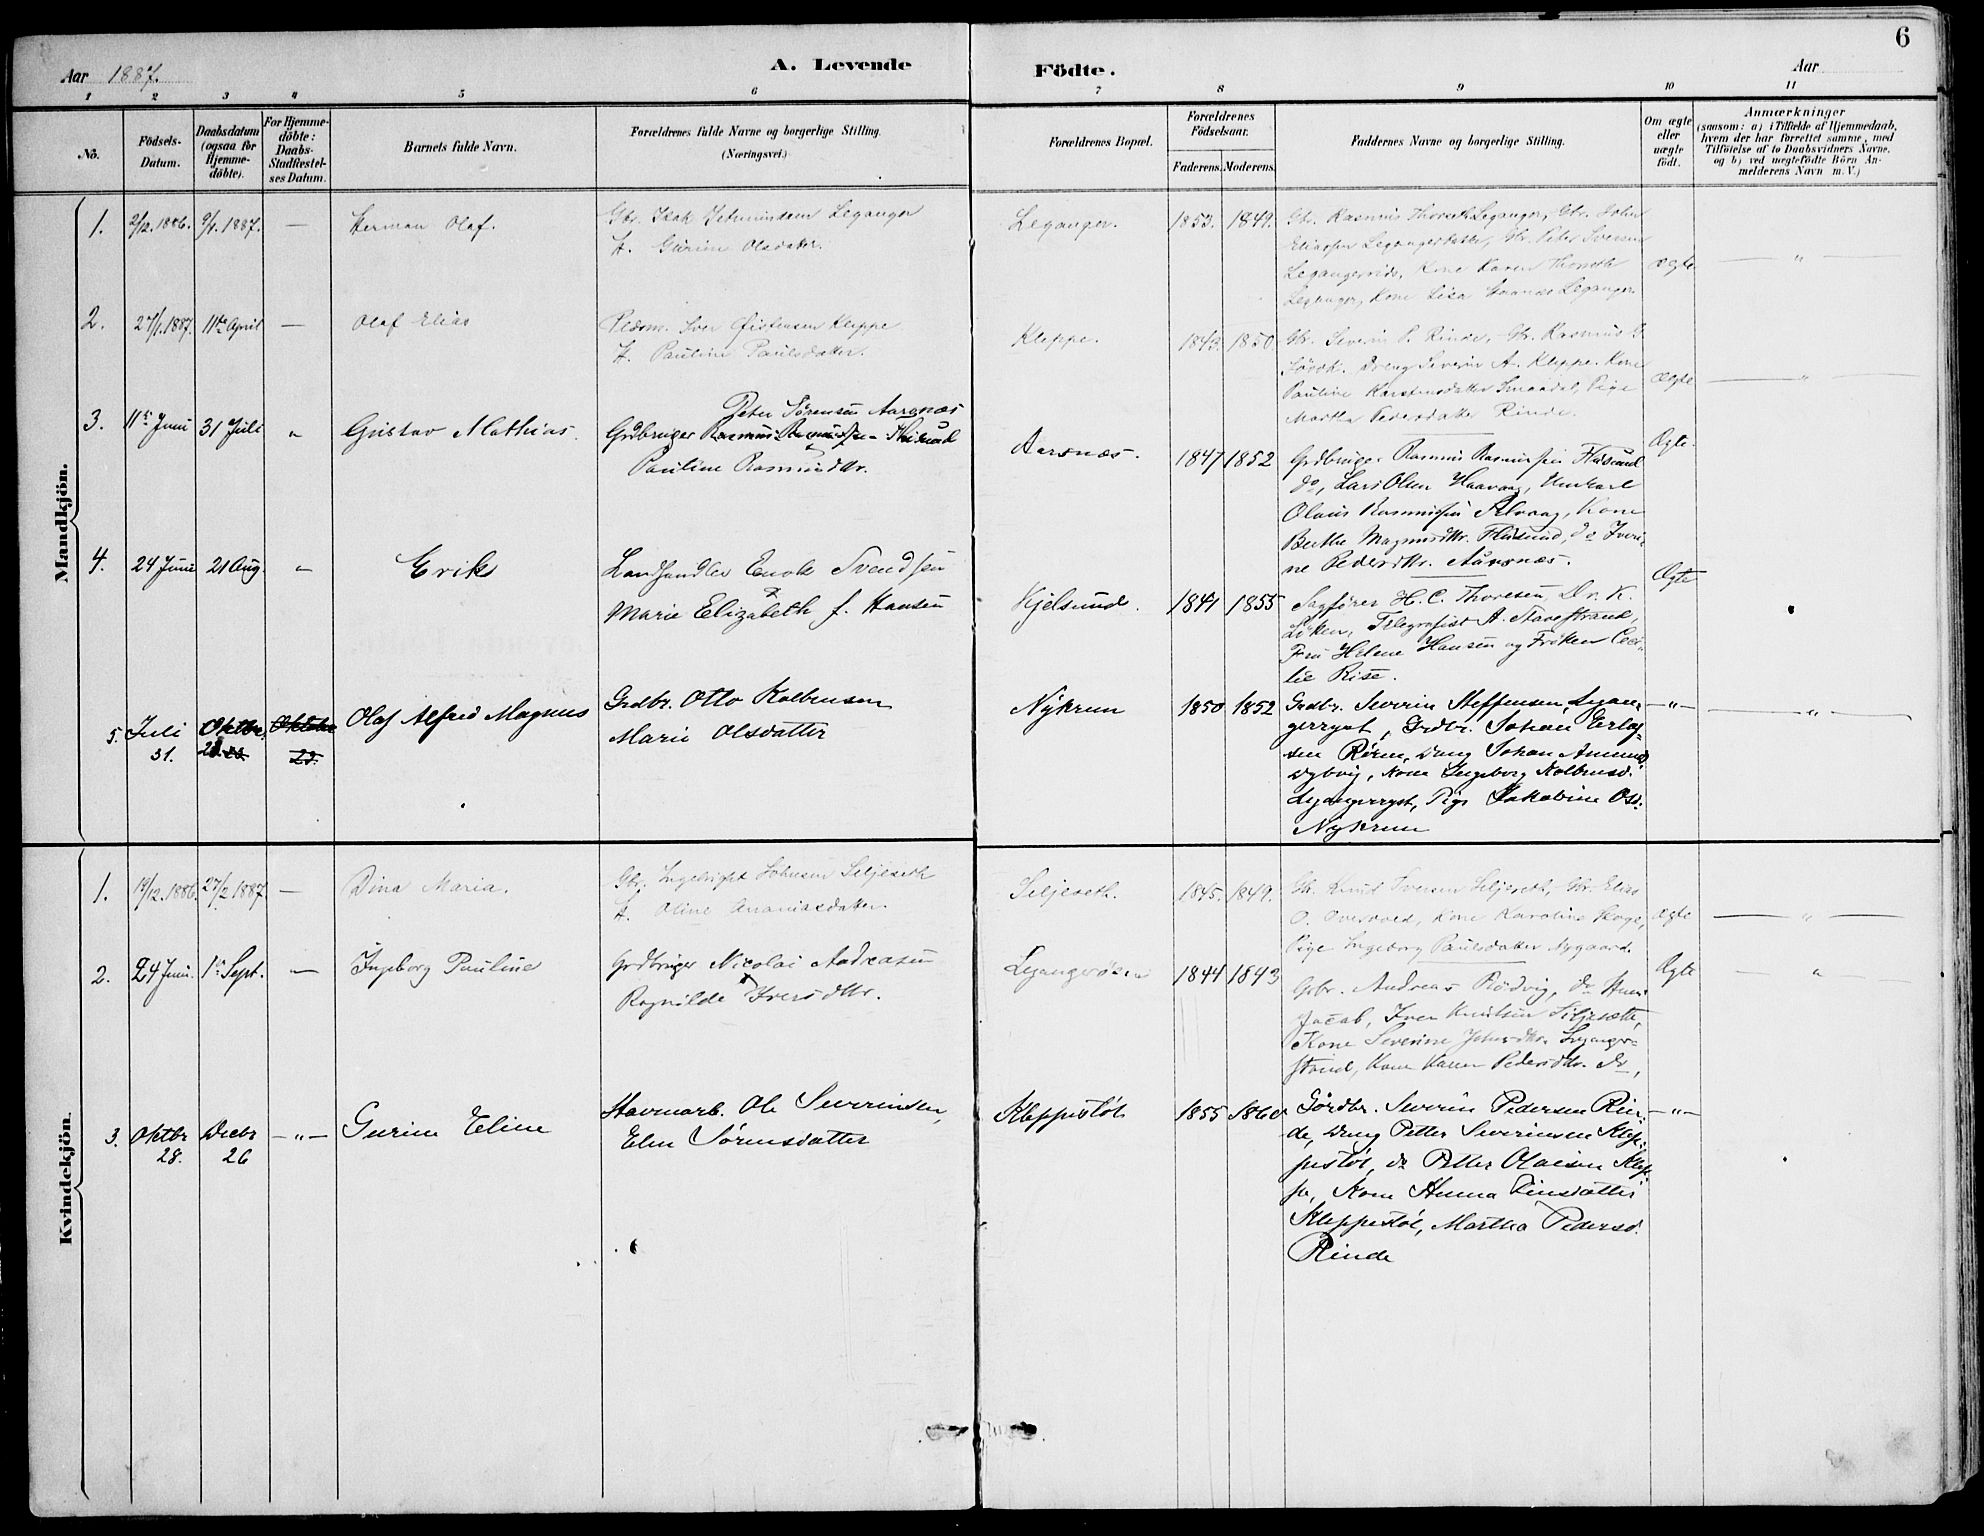 6
Aar 1887.
A. Levende Födte.
Aar
1 2 3 4 5 6 7 8 9 10 11
No.
Födsels-Datum.
Daabsdatum (ogsaa for Hjemme-döbte).
For Hjemme-döbte: Daabs-Stadfæstel-ses Datum.
Barnets fulde Navn.
Forældrenes fulde Navne og borgerlige Stilling.
(Næringsvei.)
Forældrenes Bopæl.
Forældrenes Födselsaar.
Faderens. Moderens.
Faddernes Navne og borgerlige Stilling.
Om ægte eller uægte födt.
Anmærkninger
(saasom: a) i Tilfælde af Hjemmedaab, hvem der har forrettet samme, med Tilföielse af to Daabsvidners Navne, og b) ved uægtefödte Börn An-melderens Navn m. V.)
Mandkjön.
1. 2/12. 1886. 9/1. 1887. — Herman Olaf.
Gbr. Isak Leganger
H. Gurine Olsdatter.
Leganger. 1853. 1849.
Gbr. Rasmus Thorseth Leganger, Gbr. John
Eliassen Legangerbakke, Gbr. Peter Iversen
Kone Karen Thorseth
Leganger, Kone Lisa Leganger.
Ægte. — " —
2. 27/1. 1887. 11te April — Olaf Elias
Iver Øistensen Kleppe
H. Pauline Paulsdatter.
Kleppe. 1843. 1850.
Gbr. Severin P. Rinde, Gbr. Rasmus
Dreng Severin A. Kleppe. Kone
Pauline Karstensdatter Pige
Martha Pedersdatter Rinde.
Ægte — " —
3. 11te Juni 31 Juli " Gustav Mathias.
Peter Sörensen Aarsnæs
Grdbruger Rasmus Rasmussen Flusund
Pauline Rasmusdtr.
Aarsnæs. 1847 1852
Grdbruger Rasmus Rasmussen Flusund
do, Lars Olsen Haavaag, Unkarl
Olaus Rasmussen Selvaag, Kone
Berthe Magnusdtr. Flusund, do Iveri-
ne Pedersdtr. Aarsnæs.
Ægte.
4. 24 Juni 21 Aug. " Erik
Landhandler Enok Svendsen
Marie Elizabeth f. Hansen
Kjelsund. 1841 1855
Sagförer H. C. Thoresen, Dr. K.
Löken, Telegrafist A. Stavestrand,
Fru Helene Hansen og Fröken Ceci-
lie Rise.
Ægte
5. Juli 31. Oktbr. 23. Oktober 23. Olaf Alfred Magnus
Grdbr. Otto Kolbensen
Marie Olsdatter
Nykrem 1850 1852
Grdbr. Severin Steffensen Legan-
gerryst, Grdbr. Johan Erlas-
sen Rören, Dreng Johan Amund.
Dybvig, Kone Ingeborg Kolbensd.
Legangerryst, Pige Jakobine Osd.
Nykrem
— " — — " —
Kvindekjön.
1. 19/12. 1886. 27/2 1887 — Dina Maria.
Gbr. Ingebrigt Johnsen Seljeseth
H. Oline Ananiasdatter
Seljeseth. 1845. 1849.
Gbr. Knud Iversen Seljeseth, Gbr. Elias
O. Oversveed, Kone Karoline Hoge,
Pige Ingeborg Paulsdatter Nygaard.
Ægte — " —
2. 24 Juni. 1te Sept. — Ingeborg Pauline
Grdbruger Nicolai Andreasen
Ragnilde Iversdtr.
1844 1843
Grbr. Andreas Rödvig, do
Jacob, Iver Knutsen Siljesætte,
Kone Severine Johnsdtr. Leganger-
strand, Kone Karen Pedersdtr. do,
Ægte — " —
3. Oktbr 28. Decbr 26 — " — Gurine Eline
Havnarb. Ole Severinsen,
Elen Sörensdatter
Kleppestöl 1855 1860
Gördbr. Severin Pedersen Rin-
de, Dreng Petter Severinsen Klep-
pestöl, do Petter Olaisen Klep-
pe, Kone Hanna Einsdatter
Kleppestöl, Martha Pedersd.
Rinde
— " —